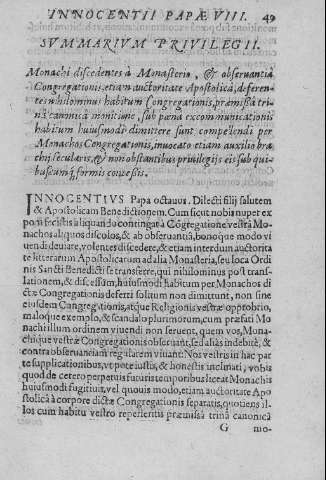 INNOCENTII PAPÆ VIII. 49
SVMMARIVM PRIVILEGII.
Monachi discedentes à Monasterio, & obseruantia
Congregationis, etiam auctoritate Apostolica, deferen-
tes nihilominus habitum Congregationis, præmissa tri-
na canonica monitione, sub pœna excommunicationis
habitum huiusmodi dimittere sunt compellendi per
Monachos Congregationis, inuocato etiam auxilio bra-
chij secularis, & non obstantibus priuilegijs eis sub qui-
buscunq; formis concessis.
INNOCENTIVS Papa octauus. Dilecti filij salutem
& Apostolicam Benedictionem. Cum sicut nobis nuper ex
poni fecistis aliquando contingat à Cōgregatione vestra Mo-
nachos aliquos discolos, & ab obseruantia, bonoque modo vi
uendi deuiare, volentes discedere, & etiam interdum auctorita
te litterarum Apostolicarum ad alia Monasteria, seu loca Ordi
nis Sancti Benedicti se transferre, qui nihilominus post trans-
lationem, & discessum, huiusmodi habitum per Monachos di
ctæ Congregationis deferri solitum non dimittunt, non sine
eiusdem Congregationis, atque Religionis vestræ opprobrio,
maloque exemplo, & scandalo plurimorum, cum præfati Mo
nachi illum ordinem viuendi non seruent, quem vos, Mona-
chique vestræ Congregationis obseruant, sed alias indebitè, &
contra obseruantiam regularem viuant: Nos vestris in hac par
te supplicationibus, vt pote iustis, & honestis inclinati, vobis
quod de cetero perpetuis futuris temporibus liceat Monachis
huiusmodi fugitiuis, vel quouis modo, etiam auctoritate Apo
stolica à corpore dictæ Congregationis separatis, quotiens il-
los cum habitu vestro repereritis præmissa trina canonica
G mo-